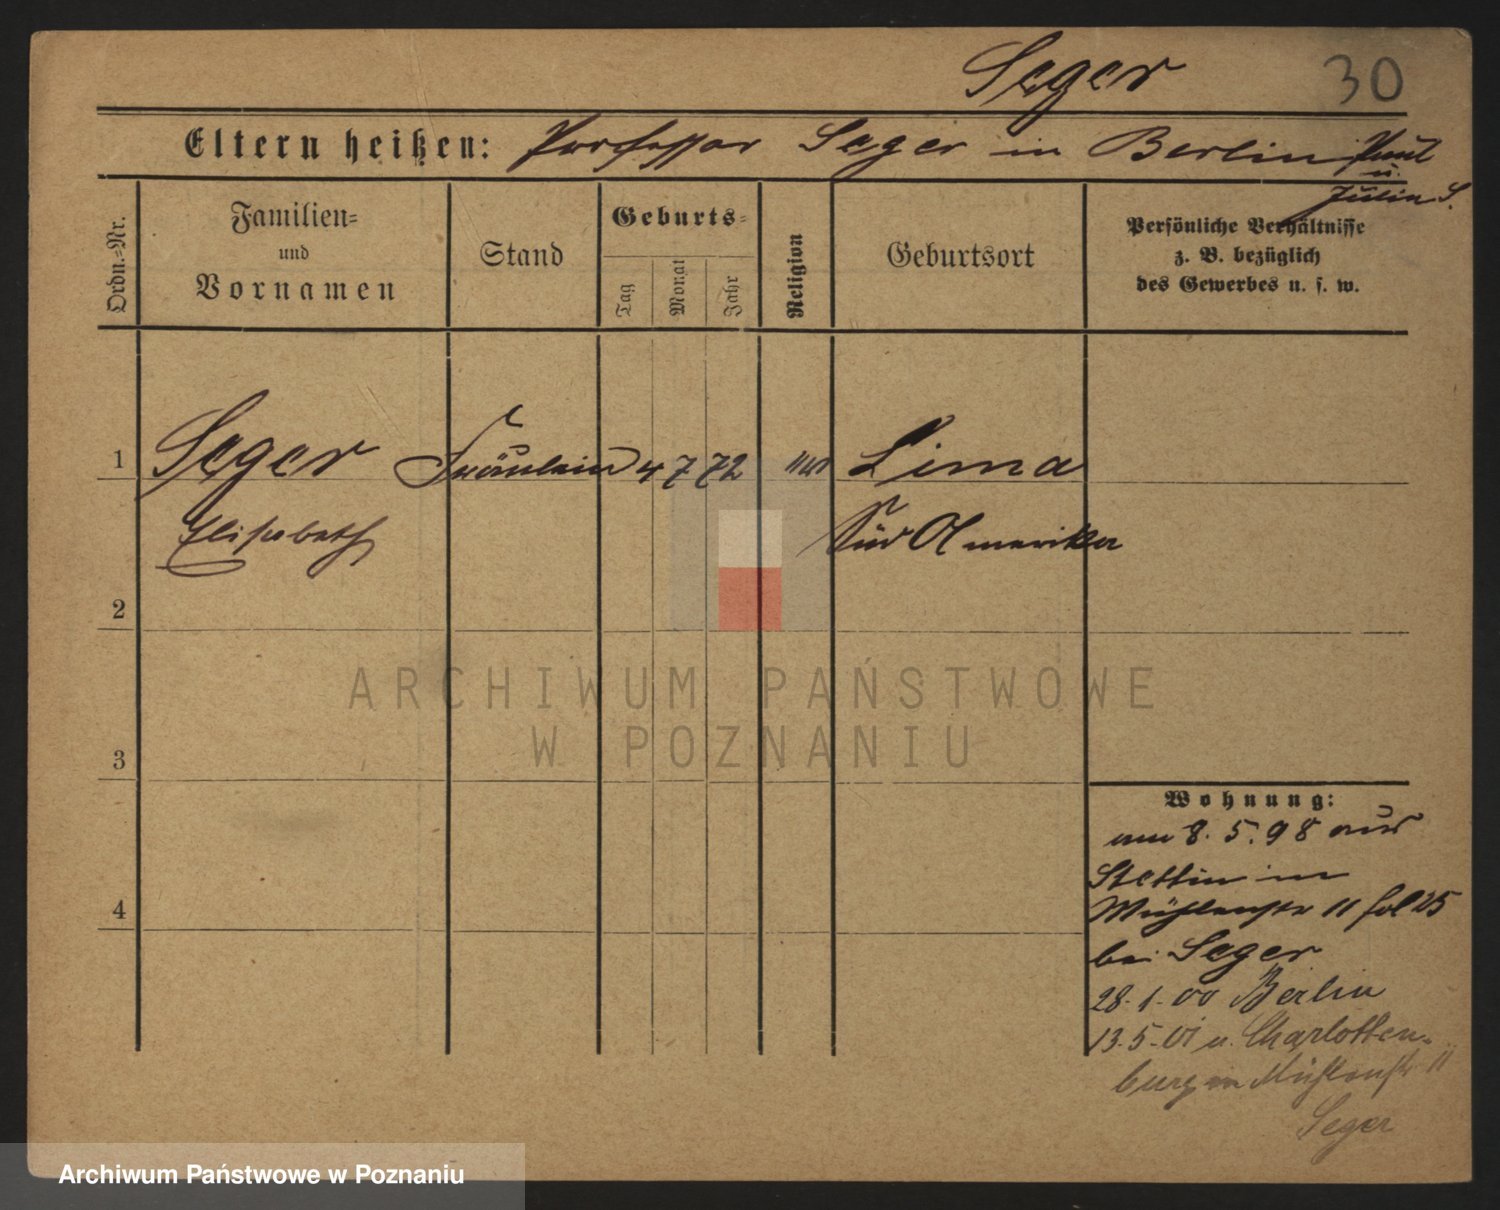 Seger 30
Eltern heißen: Professor Seger in Berlin Paul
u.
Julia S.
Ordn.-Nr.
Familien-
und
Vornamen
Stand
Geburts-
Tag
Monat
Jahr
Religion
Geburtsort
Persönliche Verhältnisse
z. B. bezüglich
des Gewerbes u. s. w.
1 Seger Fräulein 4 7 72 Lima
Elisabeth Süd Amerika
2
3
4
Wohnung:
am 8. 5. 98 aus
Stettin in
Mühlenstr 11 fol 25
bei Seger
28. 1. 00 Berlin
13. 5. 01 u. Charlotten-
burg in Mühlenstr 11
Seger
ARCHIWUM PAŃSTWOWE
W POZNANIU
Archiwum Państwowe w Poznaniu